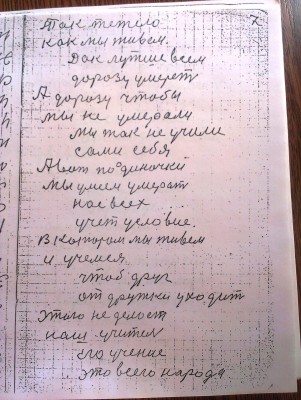 Так тежело
как мы живем.
Дак лутше всем
дорозу умерет
А дорозу чтобы
мы не умерали
мы так не учили
сами себя
А вот по одиночки
мы умеем умерат
нас всех
учет условие.
В котором мы живем
и учемся
чтоб друг
от дружки уходит
этого не делост
наш учител
его учение
это всего народа